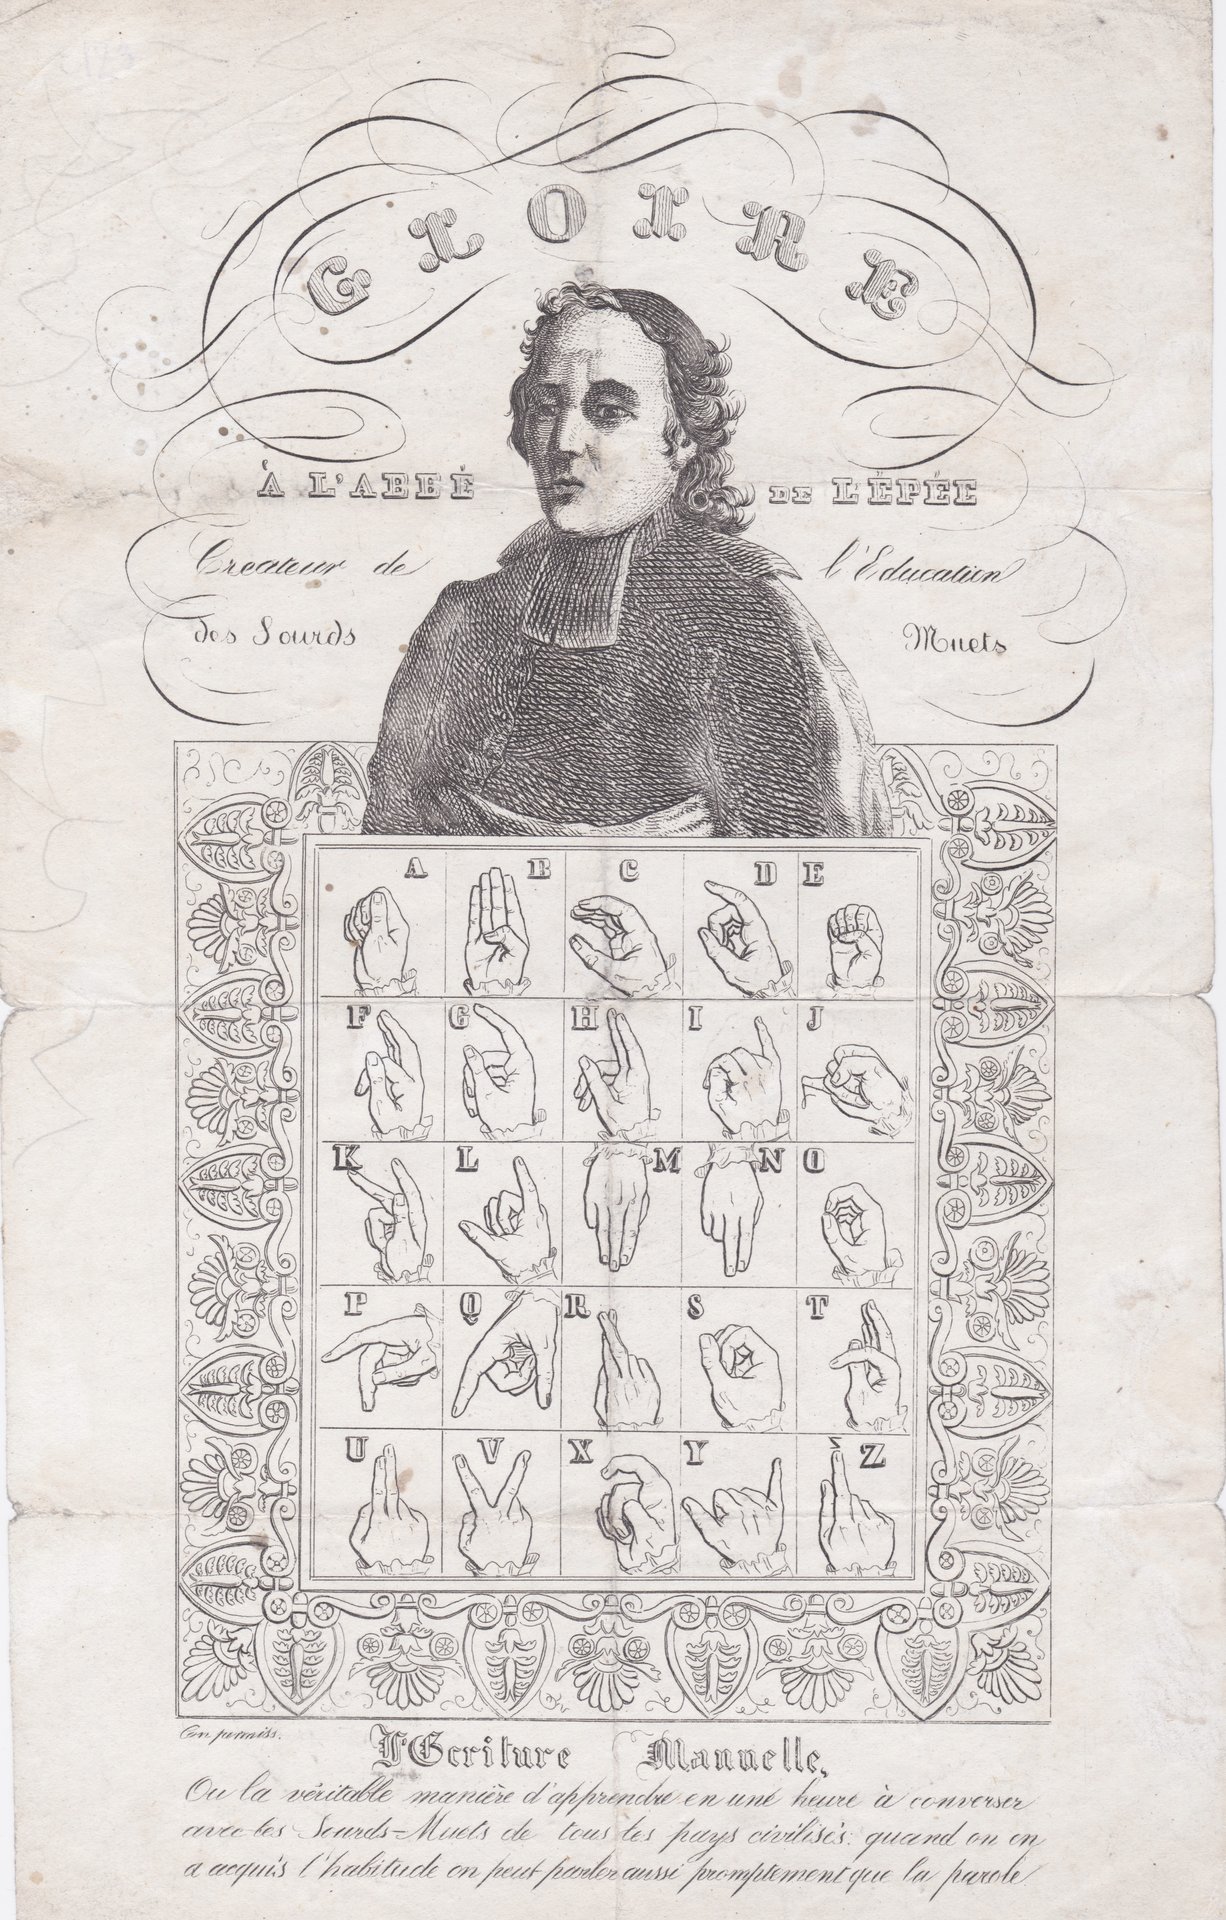 GLOIRE
À L'ABBÉ DE L'ÉPÉE
Createur de l'Education
des Sourds Muets
A B C D E
F G H I J
K L M N O
P Q R S T
U V X Y Z
En permiss.
l'Ecriture Manuelle,
Ou la véritable manière d'apprendre en une heure à converser
avec les Sourds-Muets de tous les pays civilisés: quand on en
a acquis l'habitude on peut parler aussi promptement que la parole